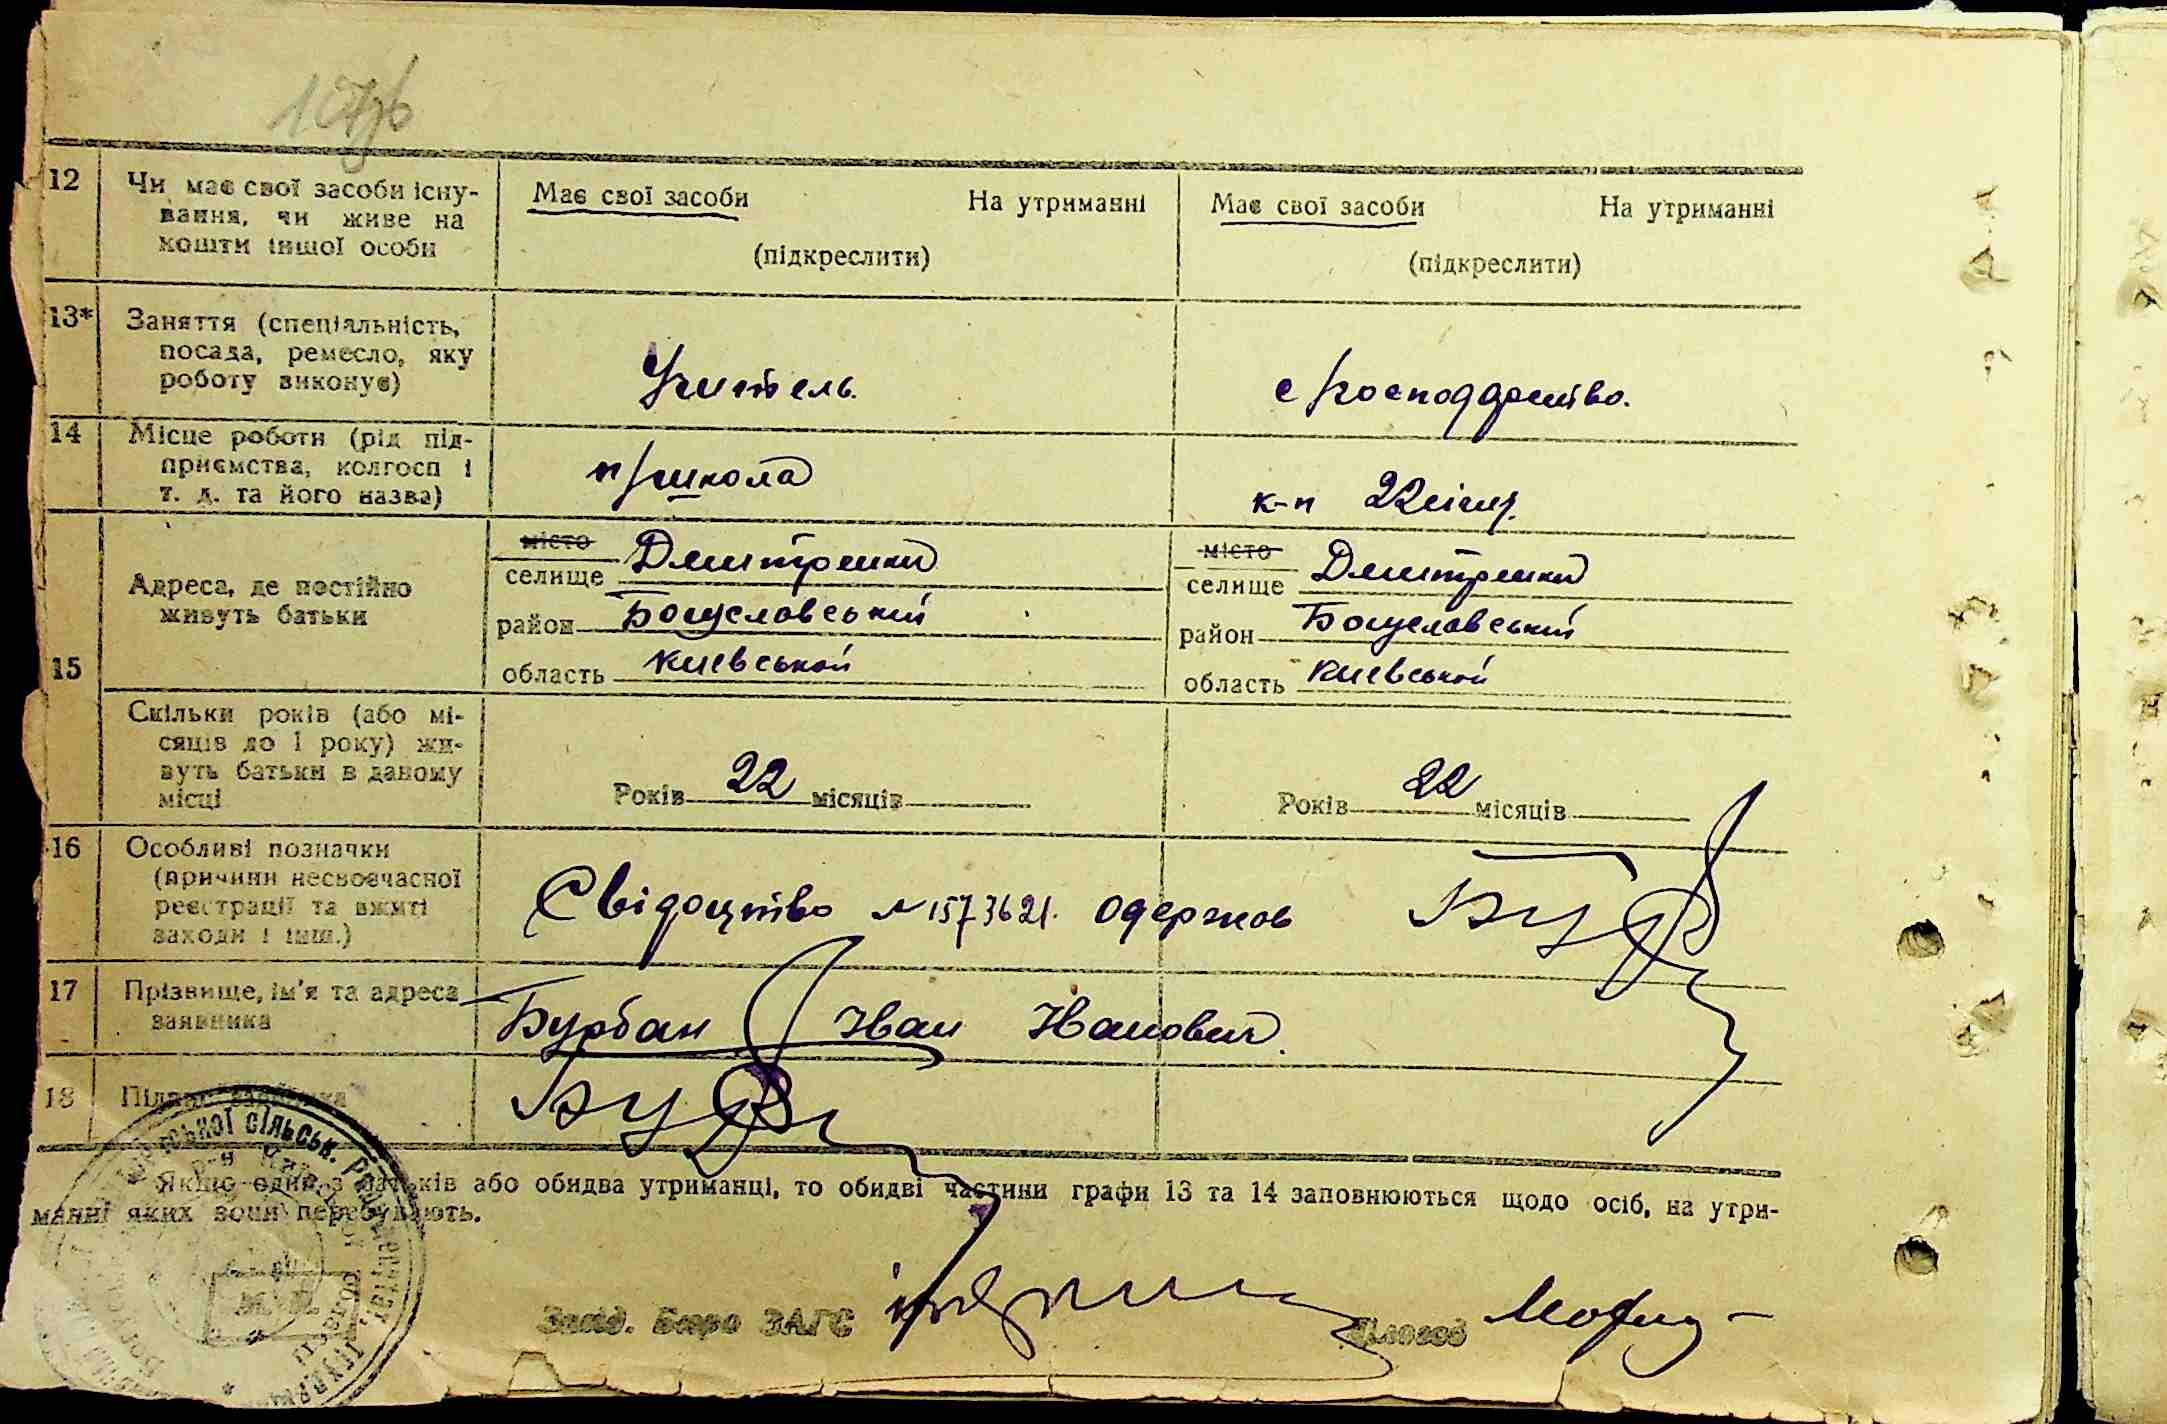 12 Чи має свої засоби існу-
вання, чи живе на
кошти іншої особи
Має свої засоби На утриманні
(підкреслити)
Має свої засоби На утриманні
(підкреслити)
13* Заняття (спеціальність,
посада, ремесло, яку
роботу виконує)
Учитель.
с господарство.
14 Місце роботи (рід під-
приємства, колгосп і
т. д. та його назва)
п/школа
к-п 22 січня
15 Адреса, де постійно
живуть батьки
місто
селище Дмитренки
район Богуславський
область Киевськой
місто
селище Дмитренки
район Богуславський
область Киевськой
Скільки років (або мі-
сяців до 1 року) жи-
вуть батьки в даному
місці
Років 22 місяців
Років 22 місяців
16 Особливі позначки
(причини несвоєчасної
реєстрації та вжиті
заходи і інш.)
Свідоцтво № 1573621. одержав
17 Прізвище, ім'я та адреса
заявника
Бурбан Іван Іванович.
18 Підпис заявника
Якщо один з батьків або обидва утриманці, то обидві частини графи 13 та 14 заповнюються щодо осіб, на утри-
манні яких вони перебувають.
Завід. Бюро ЗАГС
Діловод
М. П.